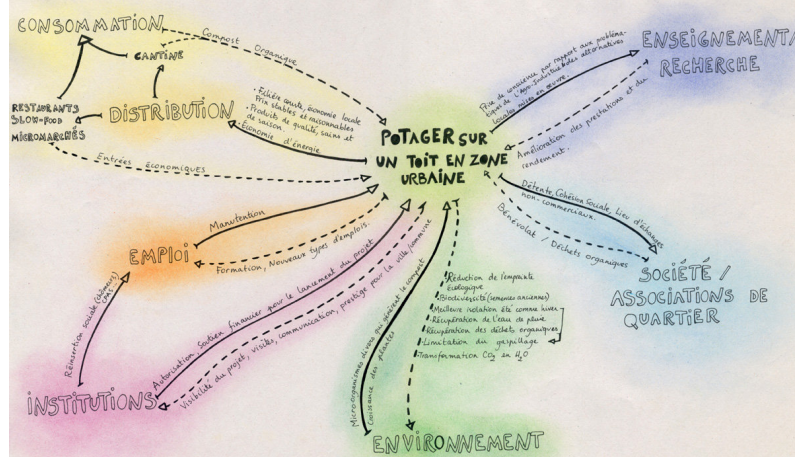 CONSOMMATION
Compost
Organique
CANTINE
RESTAURANTS
SLOW-FOOD
MICROMARCHÉS
DISTRIBUTION
- Filière courte, économie locale
Prix stables et raisonnables
- Produits de qualité, sains et
de saison.
Économie d'énergie
Entrées économiques
POTAGER SUR
UN TOIT EN ZONE
URBAINE
Prise de conscience par rapport aux probléma-
tiques de l'Agro-Industrie & des alternatives
locales mises en œuvre.
ENSEIGNEMENT
RECHERCHE
Amélioration des prestations et du
rendement.
Détente, Cohésion Sociale, Lieu d'échanges
non-commerciaux.
Bénévolat / Déchets organiques
SOCIÉTÉ /
ASSOCIATIONS DE
QUARTIER
Manutention
EMPLOI
Formation, Nouveaux types d'emplois.
Réinsertion sociale (chômeurs)
Autorisation, Soutien financier pour le lancement du projet
Visibilité du projet, visites, communication, prestige pour la ville/commune
INSTITUTIONS
Micro-organismes divers qui génèrent le compost
Croissance des plantes
- Réduction de l'empreinte
écologique
- Biodiversité (semences anciennes)
- Meilleure isolation été comme hiver
- Récupération de l'eau de pluie
- Récupération des déchets organiques
- Limitation du gaspillage
- Transformation CO2 en H2O
ENVIRONNEMENT